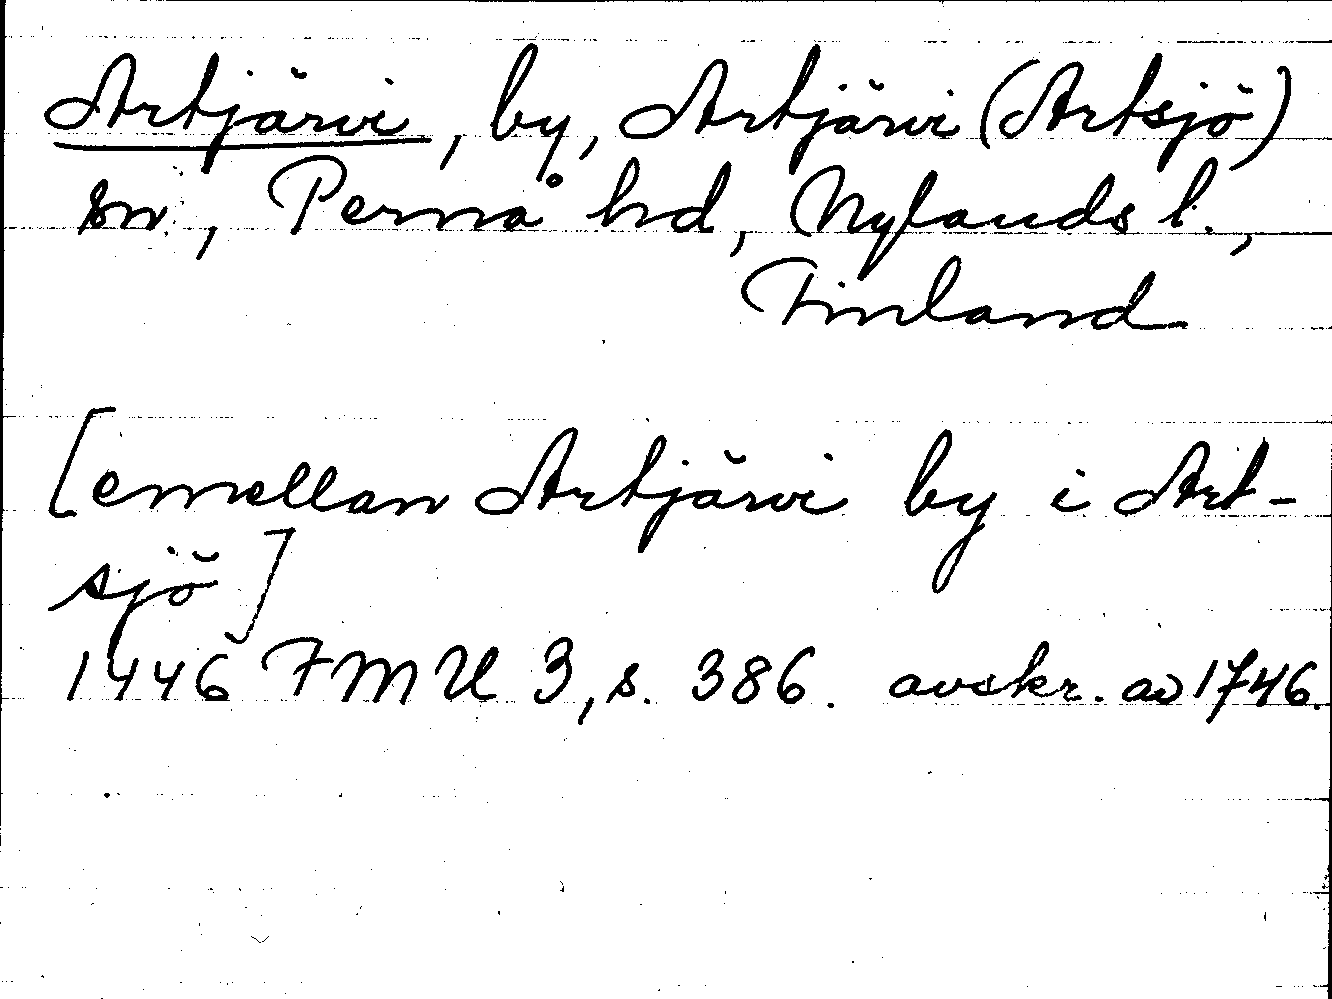 Artjärvi, by, Artjärvi (Artsjö)
sn, Pernå hd, Nylands l.,
Finland
[emellan Artjärvi by i Art-
sjö]
1446 FMU 3, s. 386. avskr. av 1746.